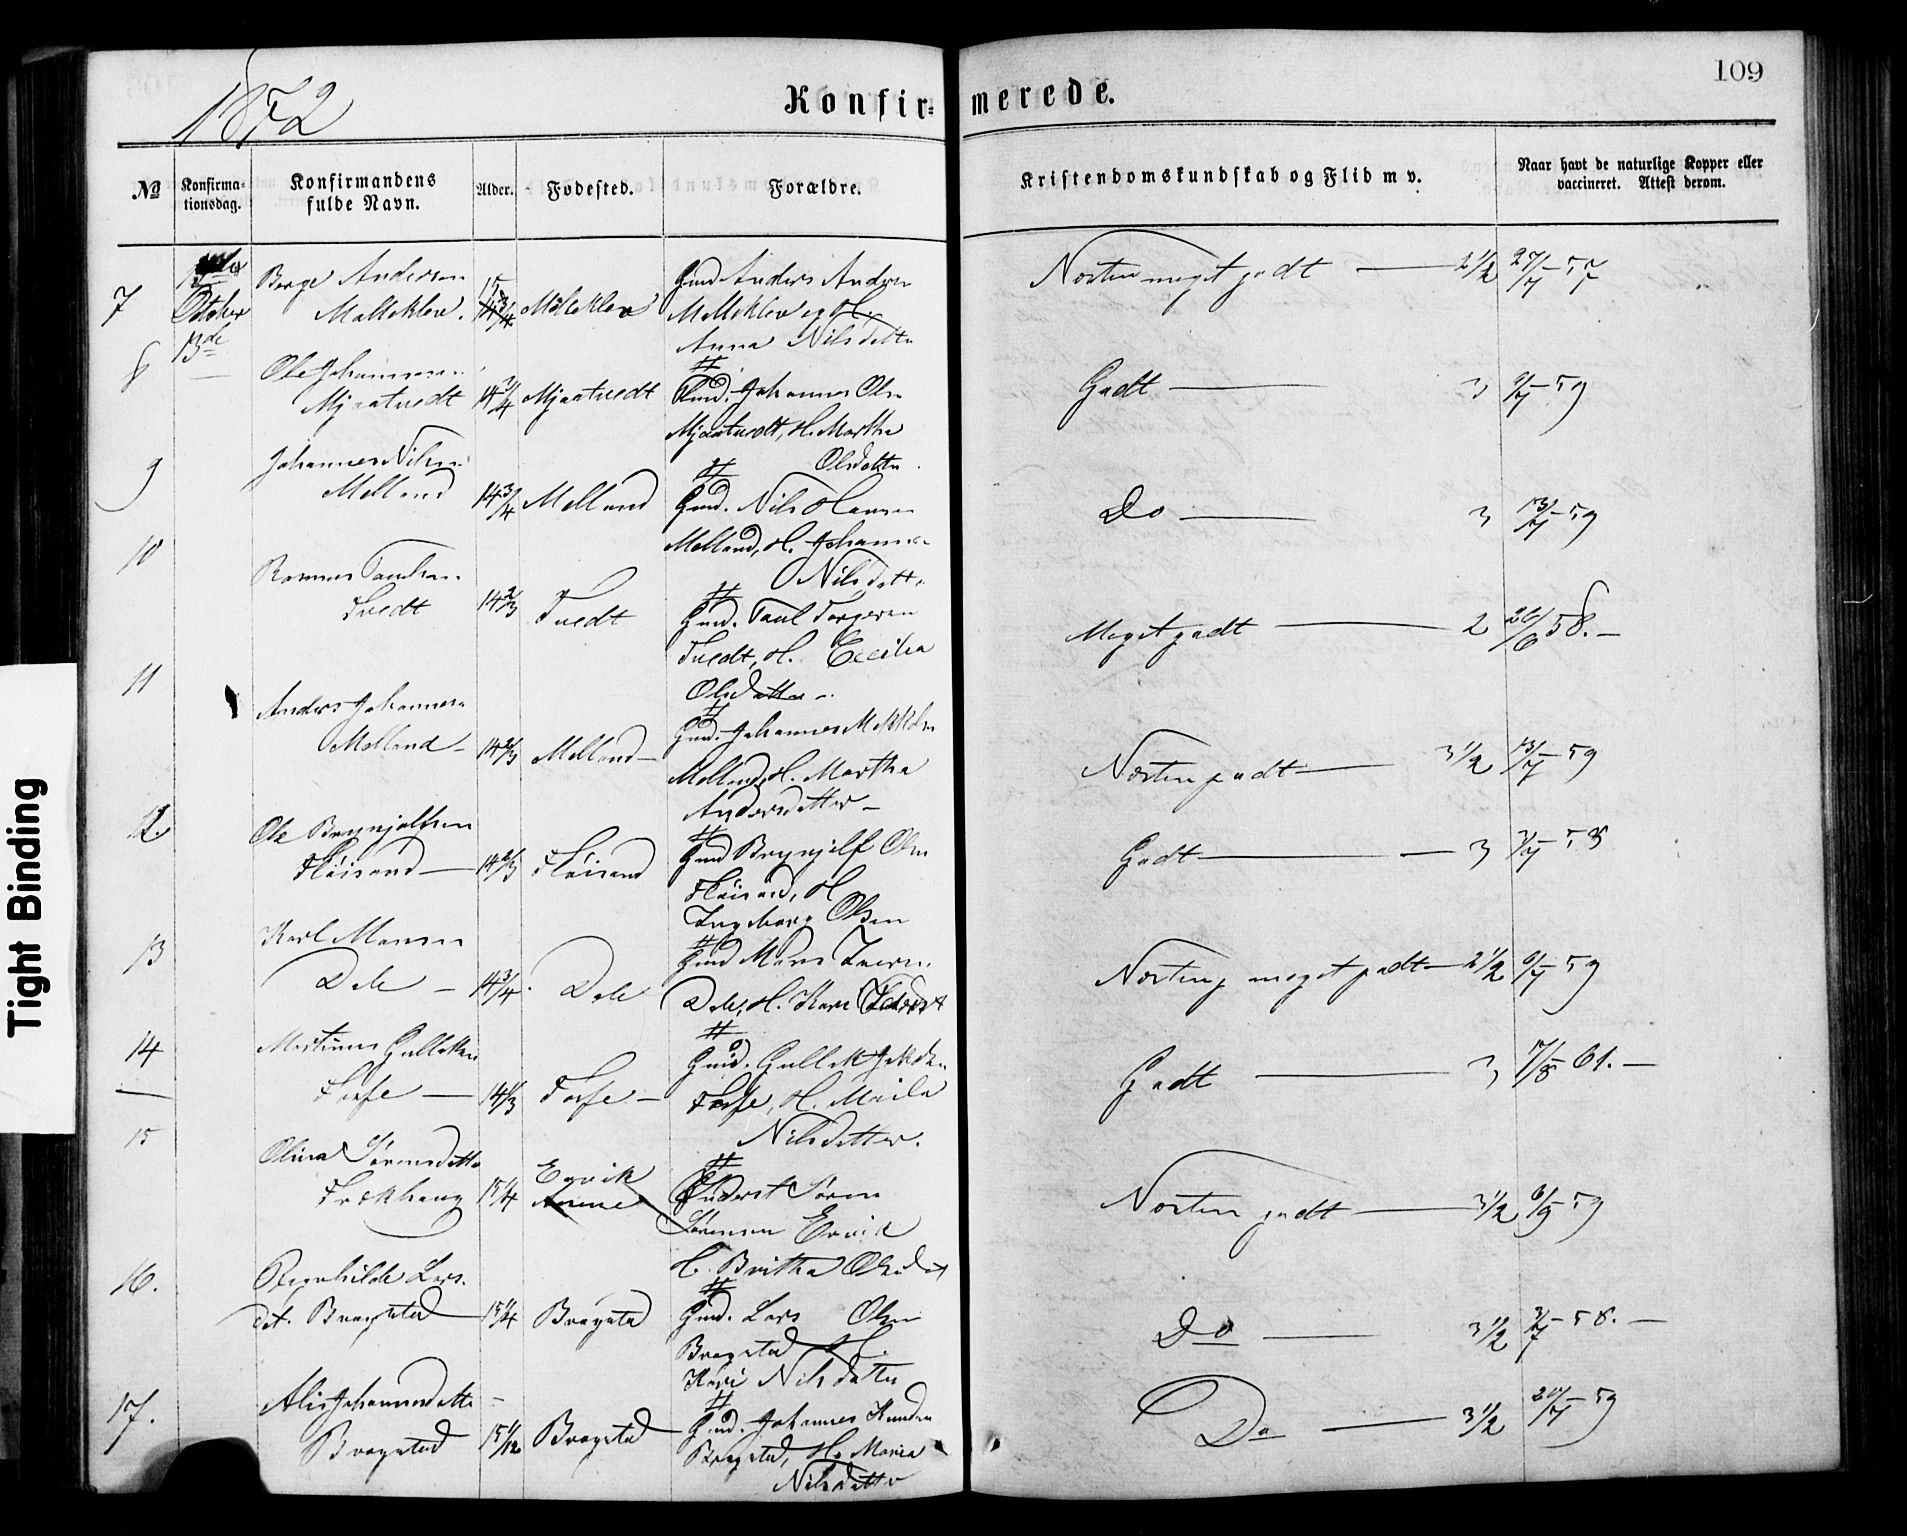 109
1872
Konfir- merede.
№
Konfirma-
tionsdag.
Konfirmandens
fulde Navn.
Alder.
Fødested.
Forældre.
Kristendomskundskab og Flid m v.
Naar havt de naturlige Kopper eller
vaccineret. Attest derom.
7
October
13de
Børge Andersen
15
Gmd Anders Anders
Anna Nilsdatter
Næsten meget godt — 2½ 27/7 – 57
8
Ole Johannesen
Mjaatvedt
14 3/4
Mjaatvedt
Gmd. Johannes Olsen
Mjaatvedt, H. Martha
Olsdatter
Godt — 3 – 59
9
Johannes Nilsen
Melland
14 3/4
Melland
Gmd. Nils Hansen
Melland, H. Johanna
Nilsdatter
Do — 3 13/7 – 59
10
Rasmus Paulsen
Tvedt
14 2/3
Tvedt
Gmd. Paul Torgersen
Tvedt, H. Cecilia
Olsdatter
Meget godt — 2 26/6 58. –
11
Anders Johannesen
Melland –
14 2/3
Melland –
Gmd. Johannes
Melland, H. Martha
Andersdatter –
Næsten godt — 3½ 13/7 – 59
12.
Ole Brynjulfsen
Fløisand —
14 2/3
Fløisand
Gmd Brynjulf Olsen
Fløisand, H
Ingeborg Olsen
Godt — 3 7/7 – 58
13
Karl Monsen
Dale –
14 3/4
Dale
Gmd Mons Iversen
Dale, H. Kari
Næsten meget godt — 2½ 6/7 – 59
14
Martinus Gulleksen
Fosse —
14 1/3
Fosse –
Gmd. Gullek
Fosse, H. Marta
Nilsdatter.
Godt — 3 7/8 61. –
15
Olina Sørensdatter
15 1/4
Ervik
Inderst Søren
Sørensen Ervik
H. Britha Olsdat
Næsten godt — 3½ 6/9 – 59
16.
Ragnhilde Lars-
dat. Bragstad
15 1/4
Bragstad
Gmd. Lars Olsen
Bragstad H.
Kari Nilsdatter
Do — 3½ 3/7 – 58. –
17.
Alis Johannesdatter –
Bragstad
15 1/12
Bragstad
Gmd. Johannes Knudsen
Bragstad, H. Maria
Nilsdatter
Do — 3½ 20/7 – 59
Tight Binding